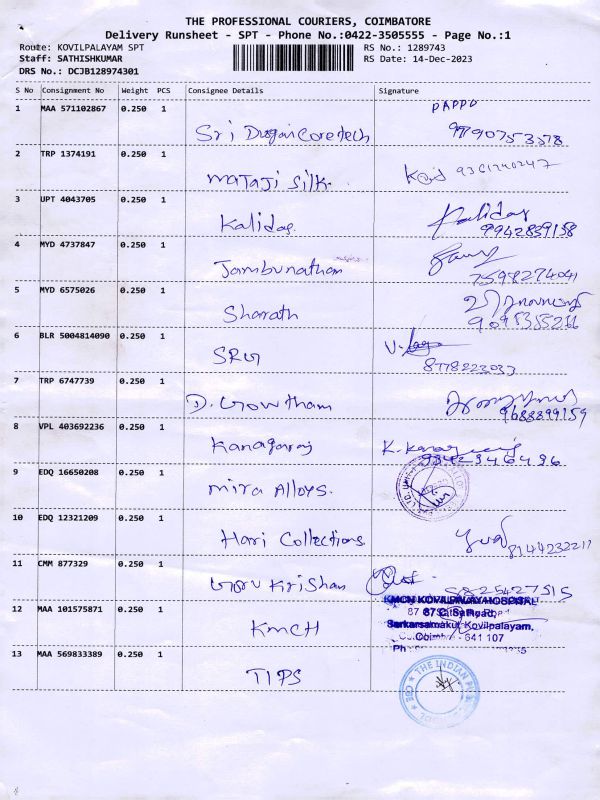 THE PROFESSIONAL COURIERS, COIMBATORE
Delivery Runsheet - SPT - Phone No.:0422-3505555 - Page No.:1
Route: KOVILPALAYAM SPT RS No.: 1289743
Staff: SATHISHKUMAR RS Date: 14-Dec-2023
DRS No.: DCJB128974301
S No Consignment No Weight PCS Consignee Details Signature
1 MAA 571102867 0.250 1 PAPPU
Sri 9790753578
2 TRP 1374191 0.250 1
MATAJI Silk.
3 UPT 4043705 0.250 1 Kalidas
Kalidas. 9942859158
4 MYD 4737847 0.250 1
Jambunathan 7598274041
5 MYD 6575026 0.250 1
Sharath
6 BLR 5004814090 0.250 1
SRG 8778223033
7 TRP 6747739 0.250 1
D. Gowtham 9688899159
8 VPL 403692236 0.250 1
Kanagaraj
9 EDQ 16650208 0.250 1
Mira Alloys.
10 EDQ 12321209 0.250 1
Hari Collections
11 CMM 877329 0.250 1
Guru Krishan
KMCH KOVILPALAYAM HOSPITAL
12 MAA 101575871 0.250 1 87 C, Sathy Road,
KMCH Sarkarsamakulam, Kovilpalayam,
Coimbatore - 641 107
13 MAA 569833389 0.250 1 THE INDIAN
TIPS